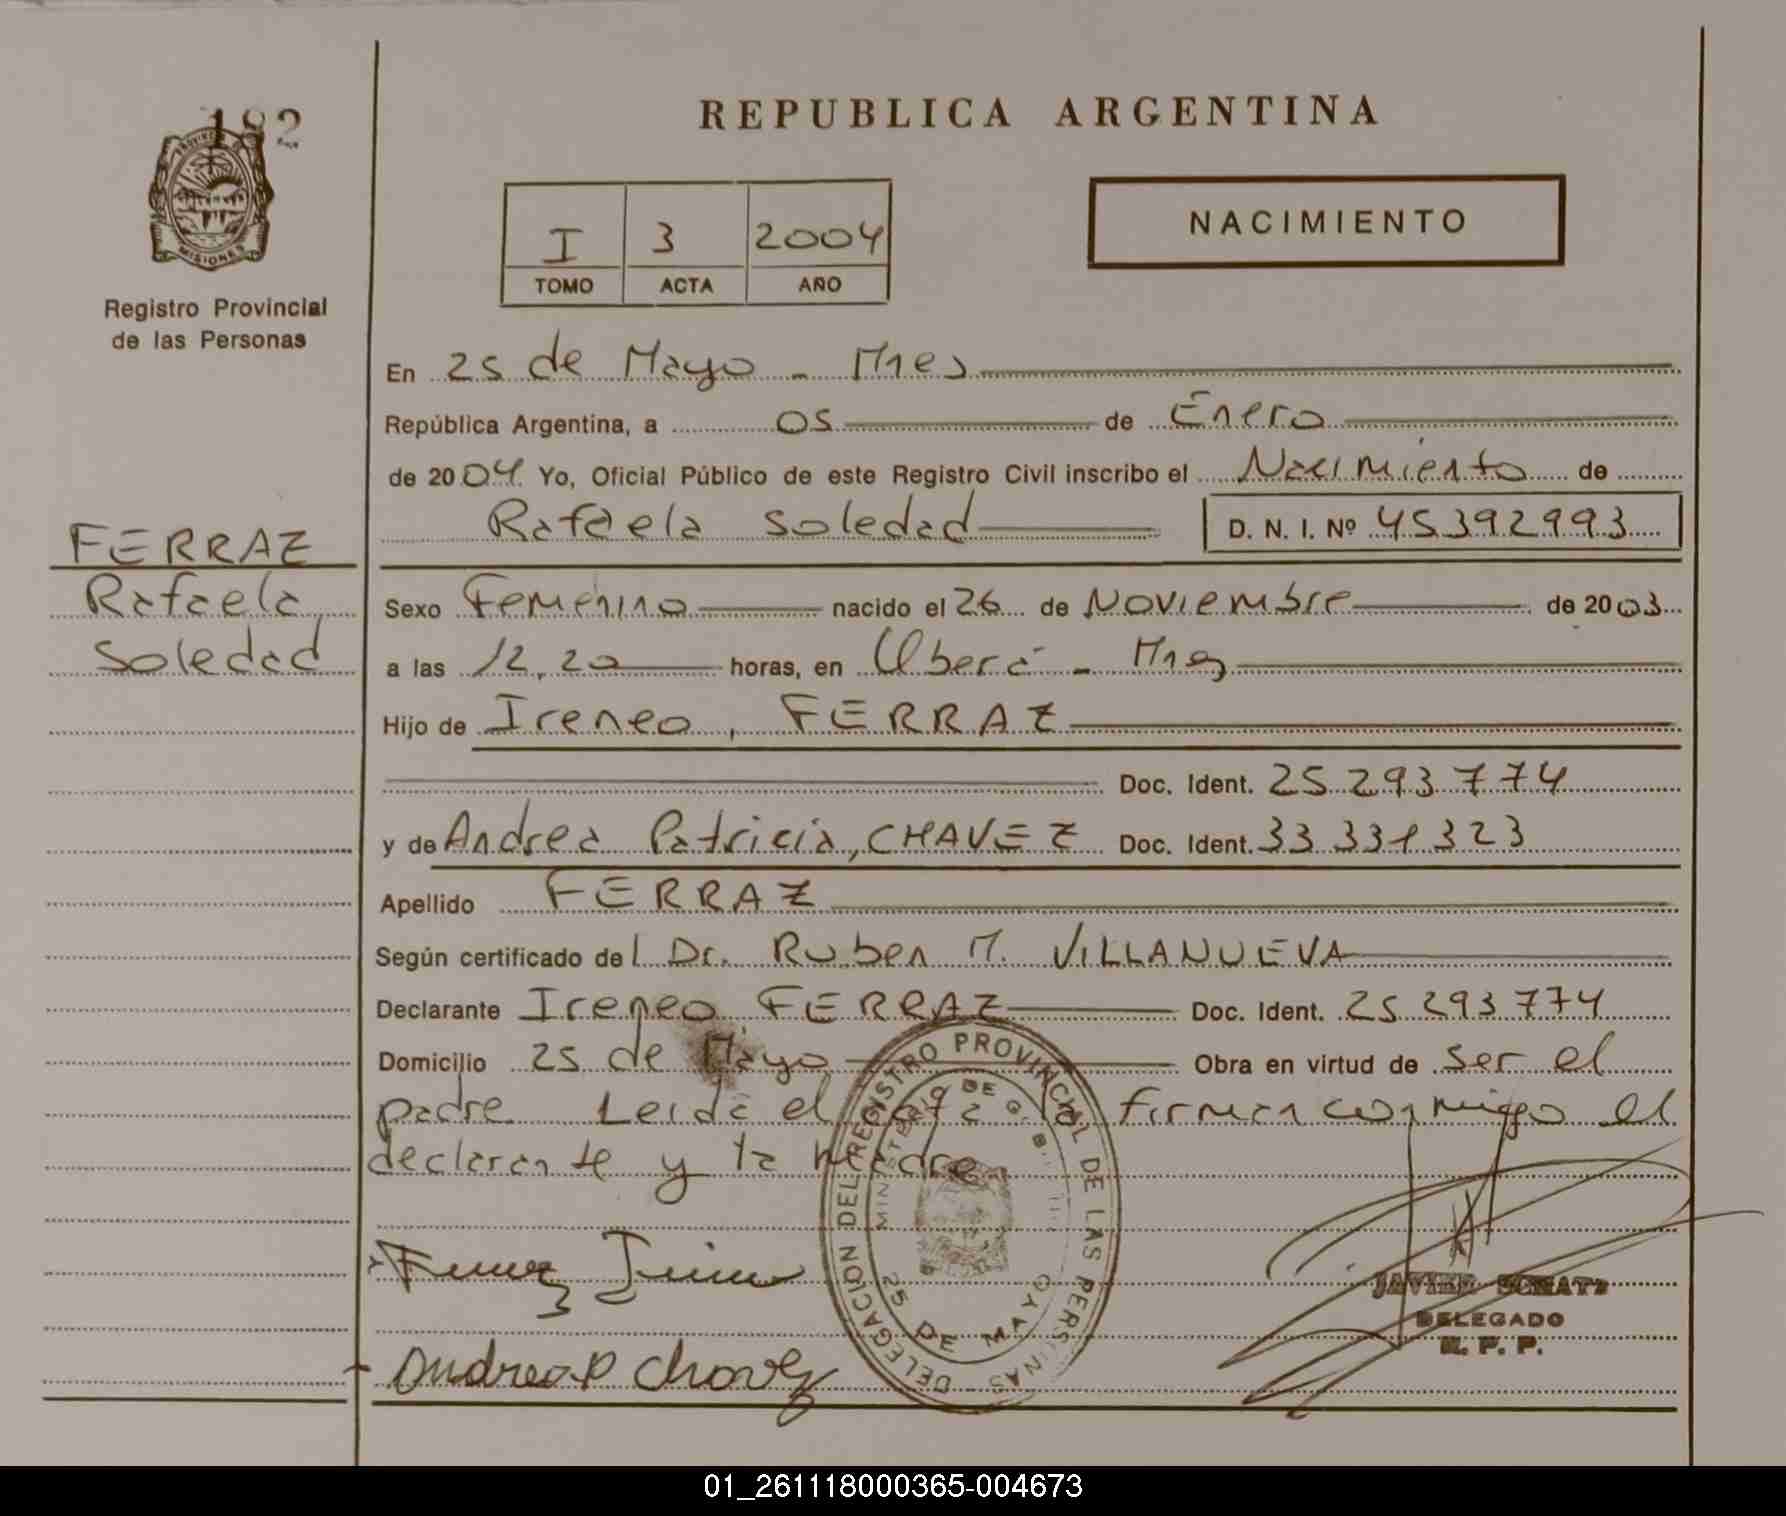 192
PROVINCIA DE
MISIONES
Registro Provincial
de las Personas
FERRAZ
Rafaela
Soledad
REPUBLICA ARGENTINA
I 3 2004
TOMO ACTA AÑO
NACIMIENTO
En 25 de Mayo - Mnes
República Argentina, a 05 de Enero
de 2004. Yo, Oficial Público de este Registro Civil inscribo el Nacimiento de
Rafaela Soledad D. N. I. Nº 45392993
Sexo Femenino nacido el 26 de Noviembre de 2003
a las 12,20 horas, en Oberá - Mnes
Hijo de Ireneo, FERRAZ
Doc. Ident. 25.293.774
y de Andrea Patricia, CHAVEZ Doc. Ident. 33.331.323
Apellido FERRAZ
Según certificado del Dr. Ruben M. VILLANUEVA
Declarante Ireneo FERRAZ Doc. Ident. 25.293.774
Domicilio 25 de Mayo Obra en virtud de ser el
padre Leida el acta la firman conmigo el
declarante y la madre
DELEGACION DEL REGISTRO PROVINCIAL DE LAS PERSONAS
MINISTERIO DE
25 DE MAYO
Andrea P Chavez
JAVIER
DELEGADO
R. P. P.
01_261118000365-004673